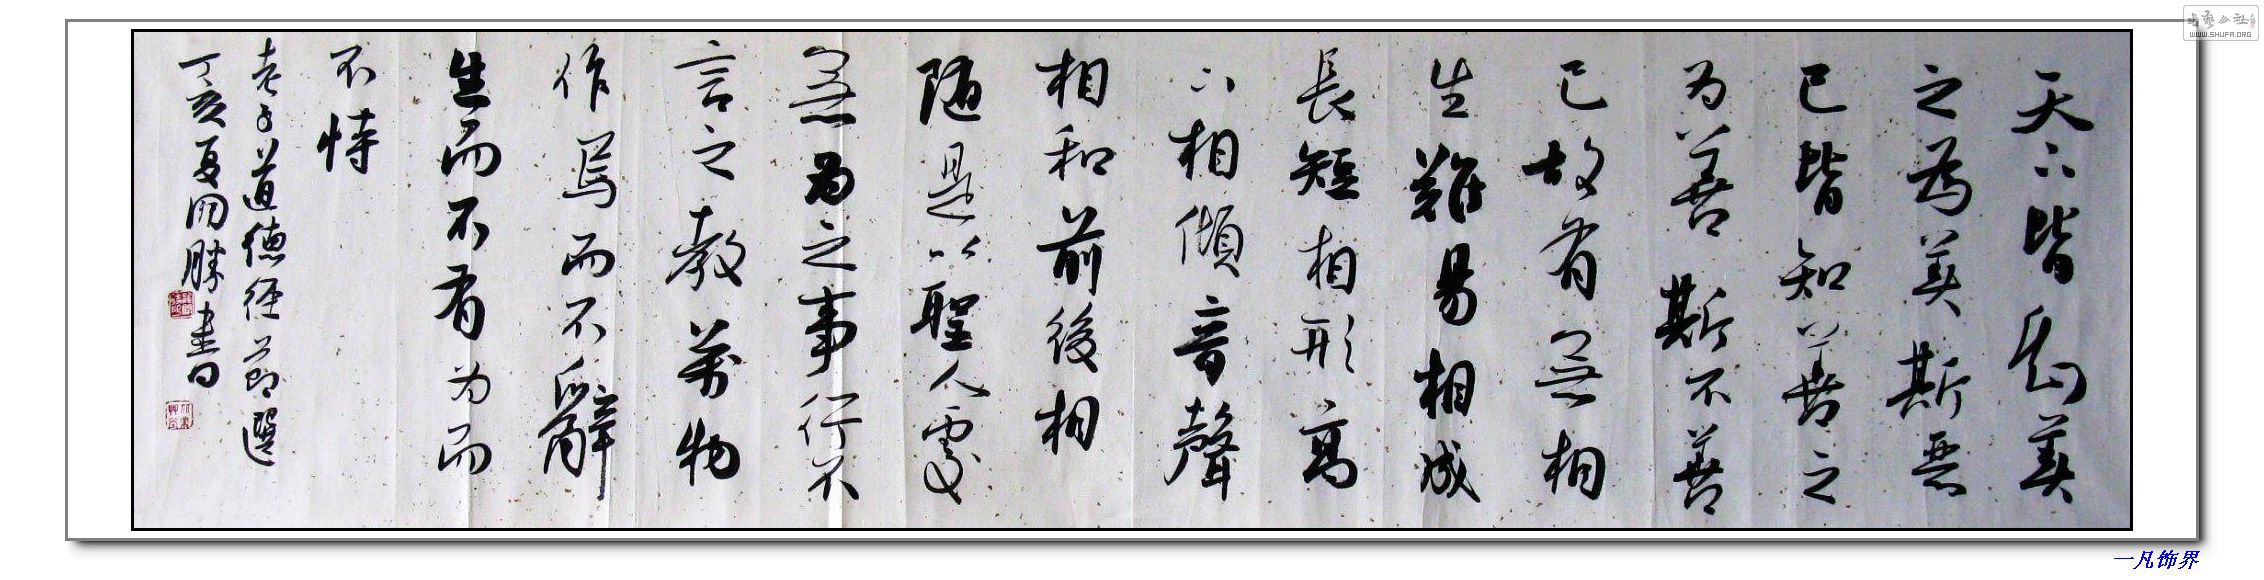 天下皆知美
之為美斯惡
已皆知善之
为善斯不善
已故有無相
生難易相成
長短相形高
下相傾音聲
相和前後相
随是以聖人處
無為之事行不
言之教萬物
作焉而不辭
生而不有为而
不恃
老子道德經節選
丁亥夏國勝書
書藝公社
WWW.SHUFA.ORG
一凡饰界